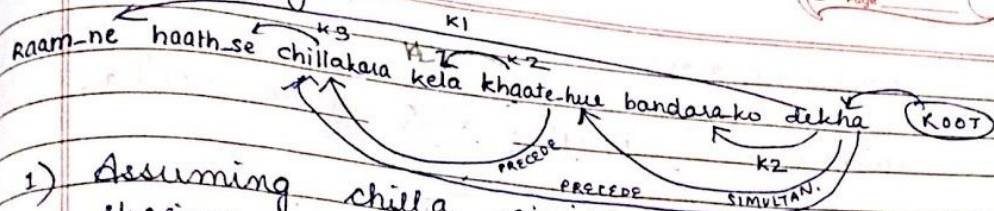 K1
K3
K2
Raam-ne haath-se chillakara kela khaate-hue bandarako dekha ROOT
PRECEDE
K2
PRECEDE
SIMULTAN.
1) Assuming chilla